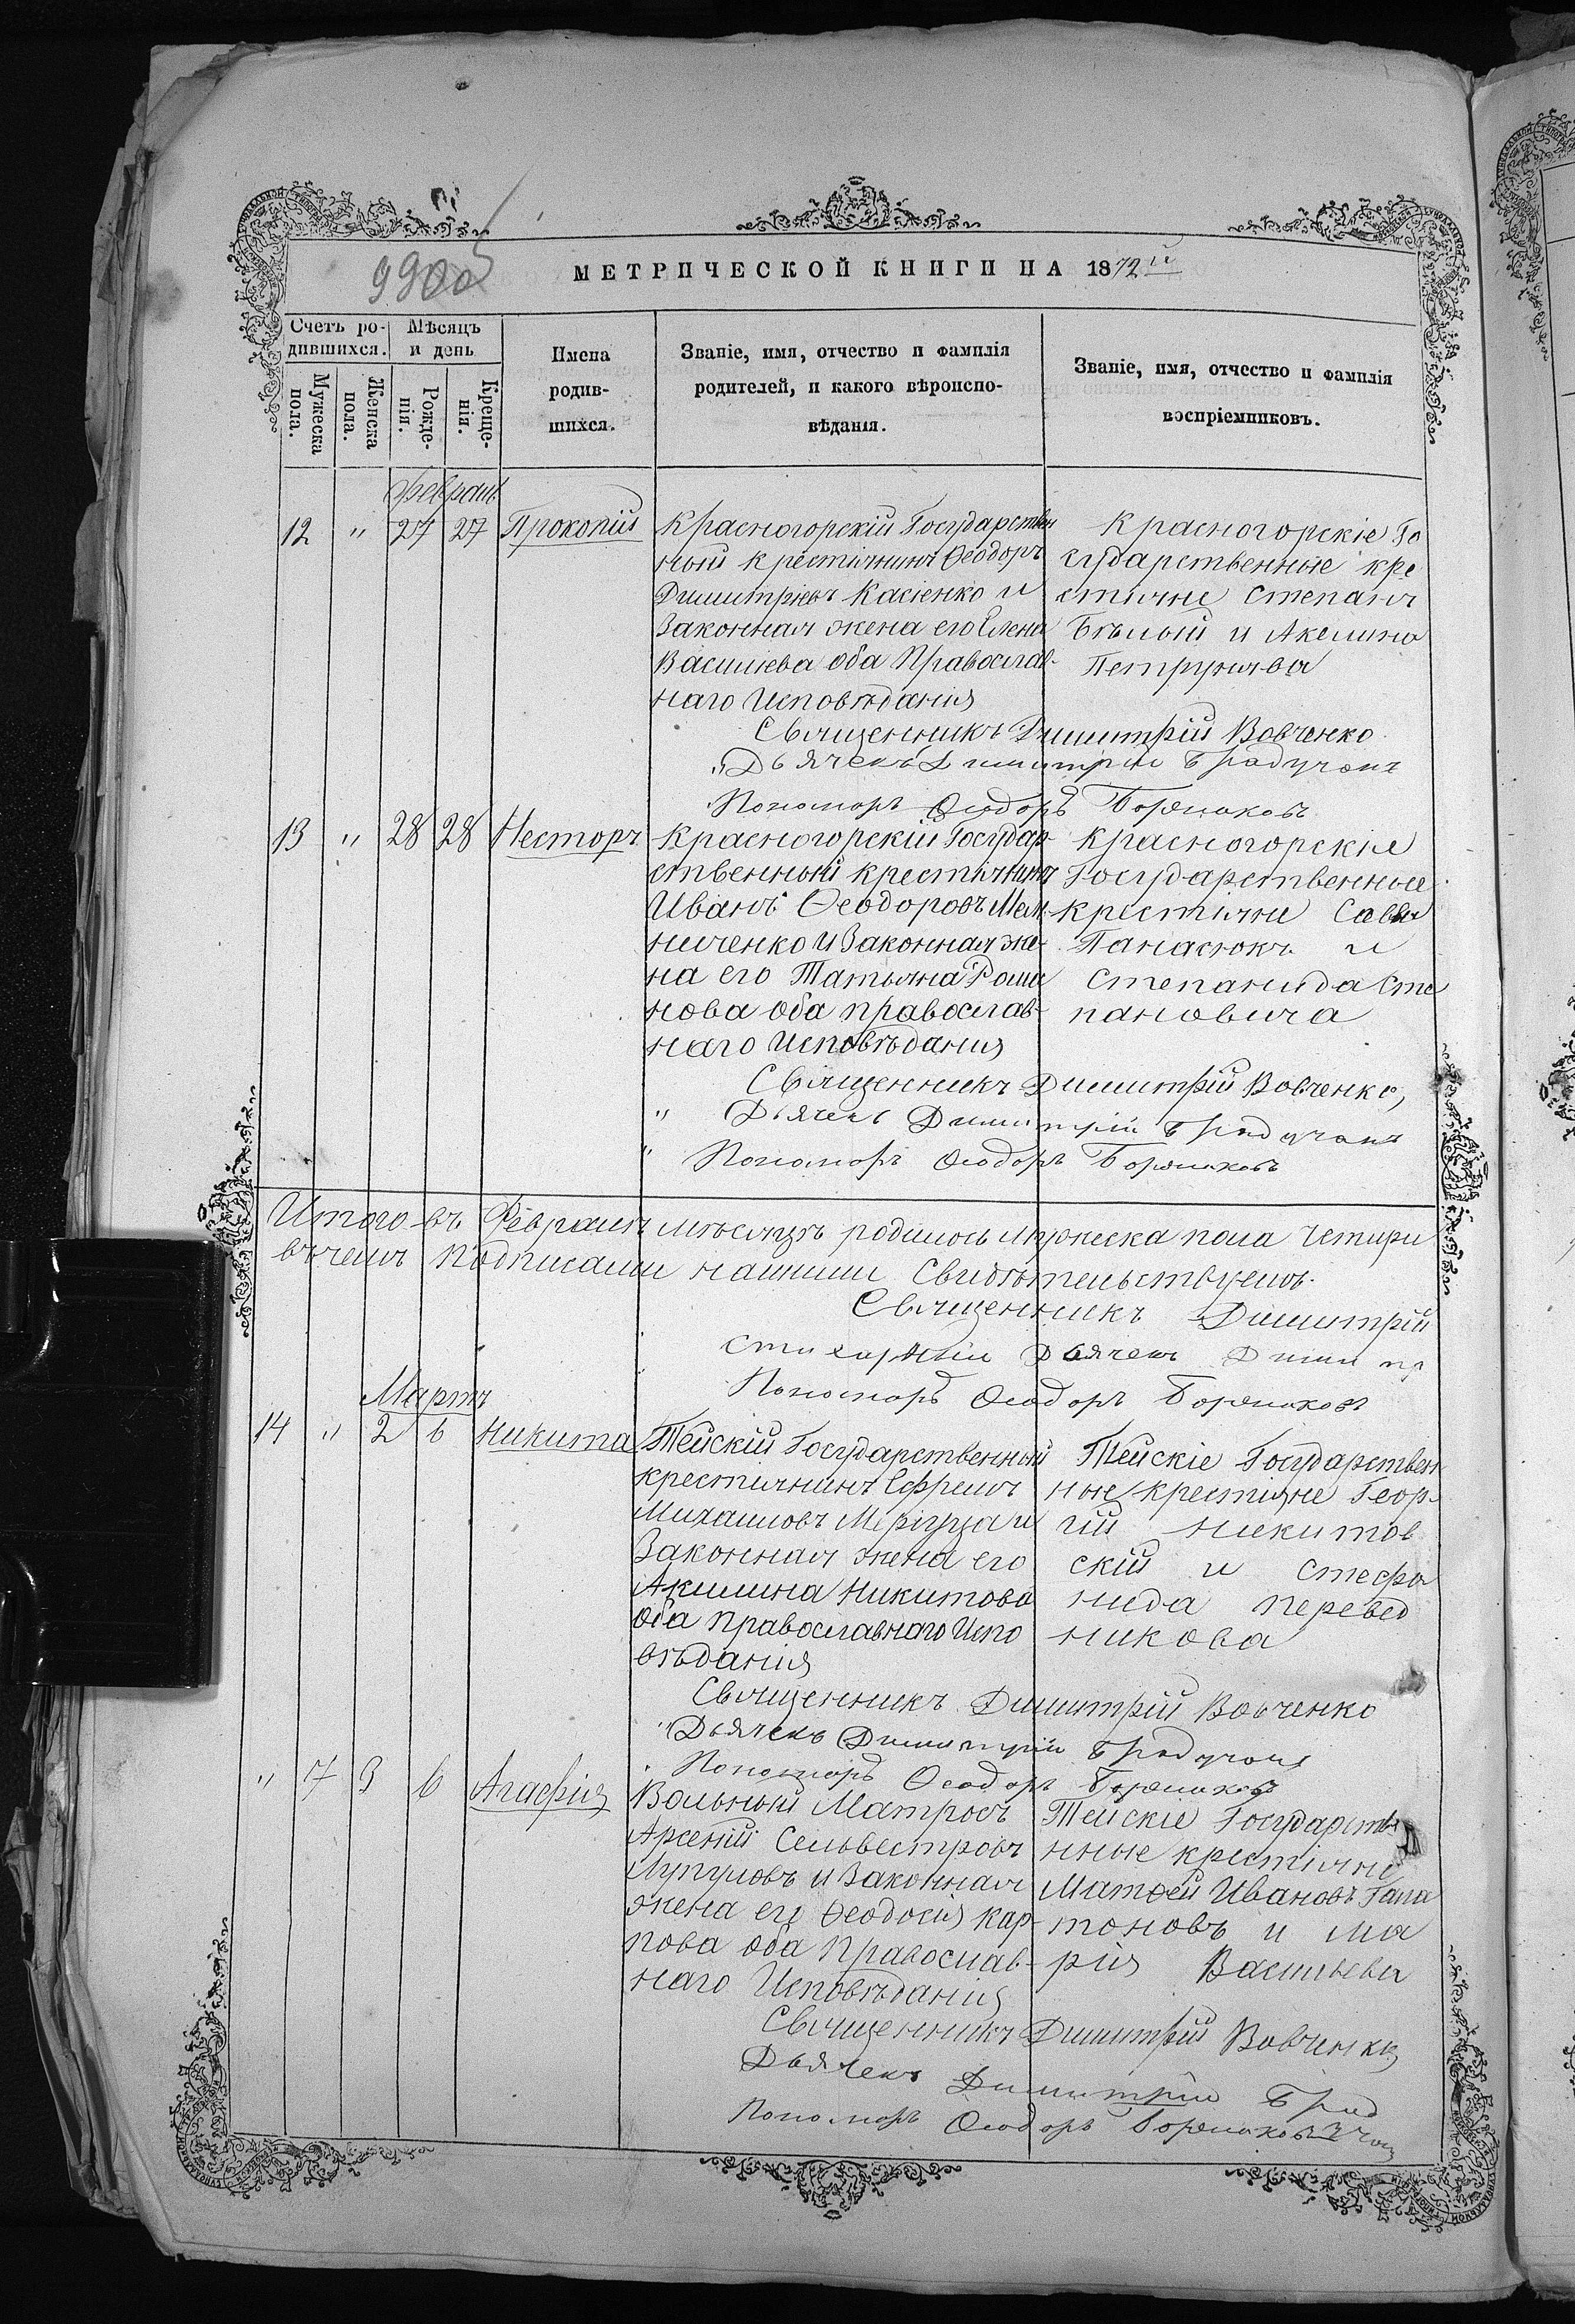 990об
МЕТРИЧЕСКОЙ КНИГИ НА 1872й
Счетъ ро-
дившихся.
Мѣсяцъ
и день
Имена
родив-
шихся.
Званіе, имя, отчество и фамилія
родителей, и какого вѣроиспо-
вѣданія.
Званіе, имя, отчество и фамилія
воспріемниковъ.
Мужеска
пола.
Женска
пола.
Рожде-
нія.
Креще-
нія.
Февраль
12 " 27 27 Прокопій
Красногорскій Государствен
ный крестіянинъ Ѳеодоръ
Димитріевъ Касіенко и
Законная жена его Елена
Василіева оба Православ-
наго Исповѣданія
Красногорскіе Го
сударственные кре
стіяне Степанъ
Бѣлый и Акилина
Петрунева
Священникъ Димитрій Вовченко
"Дьячекъ Димитрій
Пономоръ Ѳеодоръ
13 " 28 28 Несторъ
Красногорскій Государ-
ственный крестіянинъ
Иванъ Ѳеодоровъ Мел
ниченко и Законная же-
на его Татьяна Рома
нова оба православ-
наго исповѣданія
Красногорскіе
Государственные
крестіяне Савва
Панасюкъ и
Степанида Сте
пановича
Священникъ Димитрій Вовченко,
" Дьячекъ Димитрій
" Пономоръ Ѳеодоръ
Итого въ Февралѣ мѣсяцѣ родилось мужеска пола четыри
въ чемъ подписами нашими Свидѣтельствуемъ.
Священникъ Димитрій
Стихарный Дьячекъ Димитр
Пономоръ Ѳеодоръ
Мартъ
14 " 2 6 Никита
Тейскій Государственный
крестіянинъ Ефремъ
Михаиловъ Мергуца и
Законная жена его
Акилина Никитова
оба Православнаго Испо
вѣданія
Тейскіе Государствен
ные крестіяне Геор-
гій Никитов
скій и Стефа
нида Перевед
никова
Священникъ Димитрій Вовченко
"Дьячекъ Димитрій
Пономоръ Ѳеодоръ
" 7 3 6 Агафія
Вольный Матросъ
Арсеній Сельвестровъ
Лупуловъ и Законная
жена его Ѳеодосія Кар-
пова оба Православ-
наго Исповѣданія
Тейскіе Государстве
нные крестіяне
Матѳей Ивановъ Гапа
тоновъ и Ма
рія Васильева
Священникъ Димитрій Вовченко
Дьячекъ Димитрій
Пономоръ Ѳеодоръ